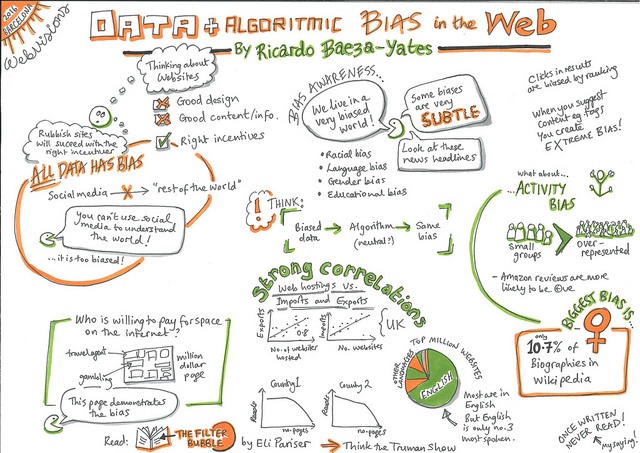 2014
BARCELONA
WebVisions
DATA + ALGORITMIC BIAS in the Web
By Ricardo Baeza-Yates
Thinking about
Websites
Good design
Good content/info.
Right incentives
Rubbish sites
will succeed with the
right incentives
ALL DATA HAS BIAS
Social media → X → "rest of the world"
You can't use social
media to understand
the world!
...it is too biased!
BIAS AWARENESS...
We live in a
very biased
world!
Some biases
are very
SUBTLE
Look at these
news headlines
• Racial bias
• Language bias
• Gender bias
• Educational bias
! THINK:
Biased
data
→
Algorithm
(neutral?)
→
Same
bias
Clicks in results
are biased by ranking
When you suggest
content eg tags
You create
EXTREME BIAS!
what about...
...ACTIVITY
BIAS
small
groups
over-
represented
- Amazon reviews are more
likely to be +ve
Strong correlations
Web hostings vs.
Imports and Exports
Exports
0.8
No. of websites
hosted
Imports
No. websites
UK
Who is willing to pay for space
on the internet?
travel agent
gambling
million
dollar
page
This page demonstrates
the bias
Read:
THE FILTER
BUBBLE
by Eli Pariser → Think the Truman Show
Country 1
no. pages
Country 2
no. pages
TOP MILLION WEBSITES
OTHER
LANGUAGES
ENGLISH
Most are in
English
But English
is only no.3
most spoken.
BIGGEST BIAS IS:
only
10.7% of
Biographies in
Wikipedia
ONCE WRITTEN
NEVER READ!
my saying!